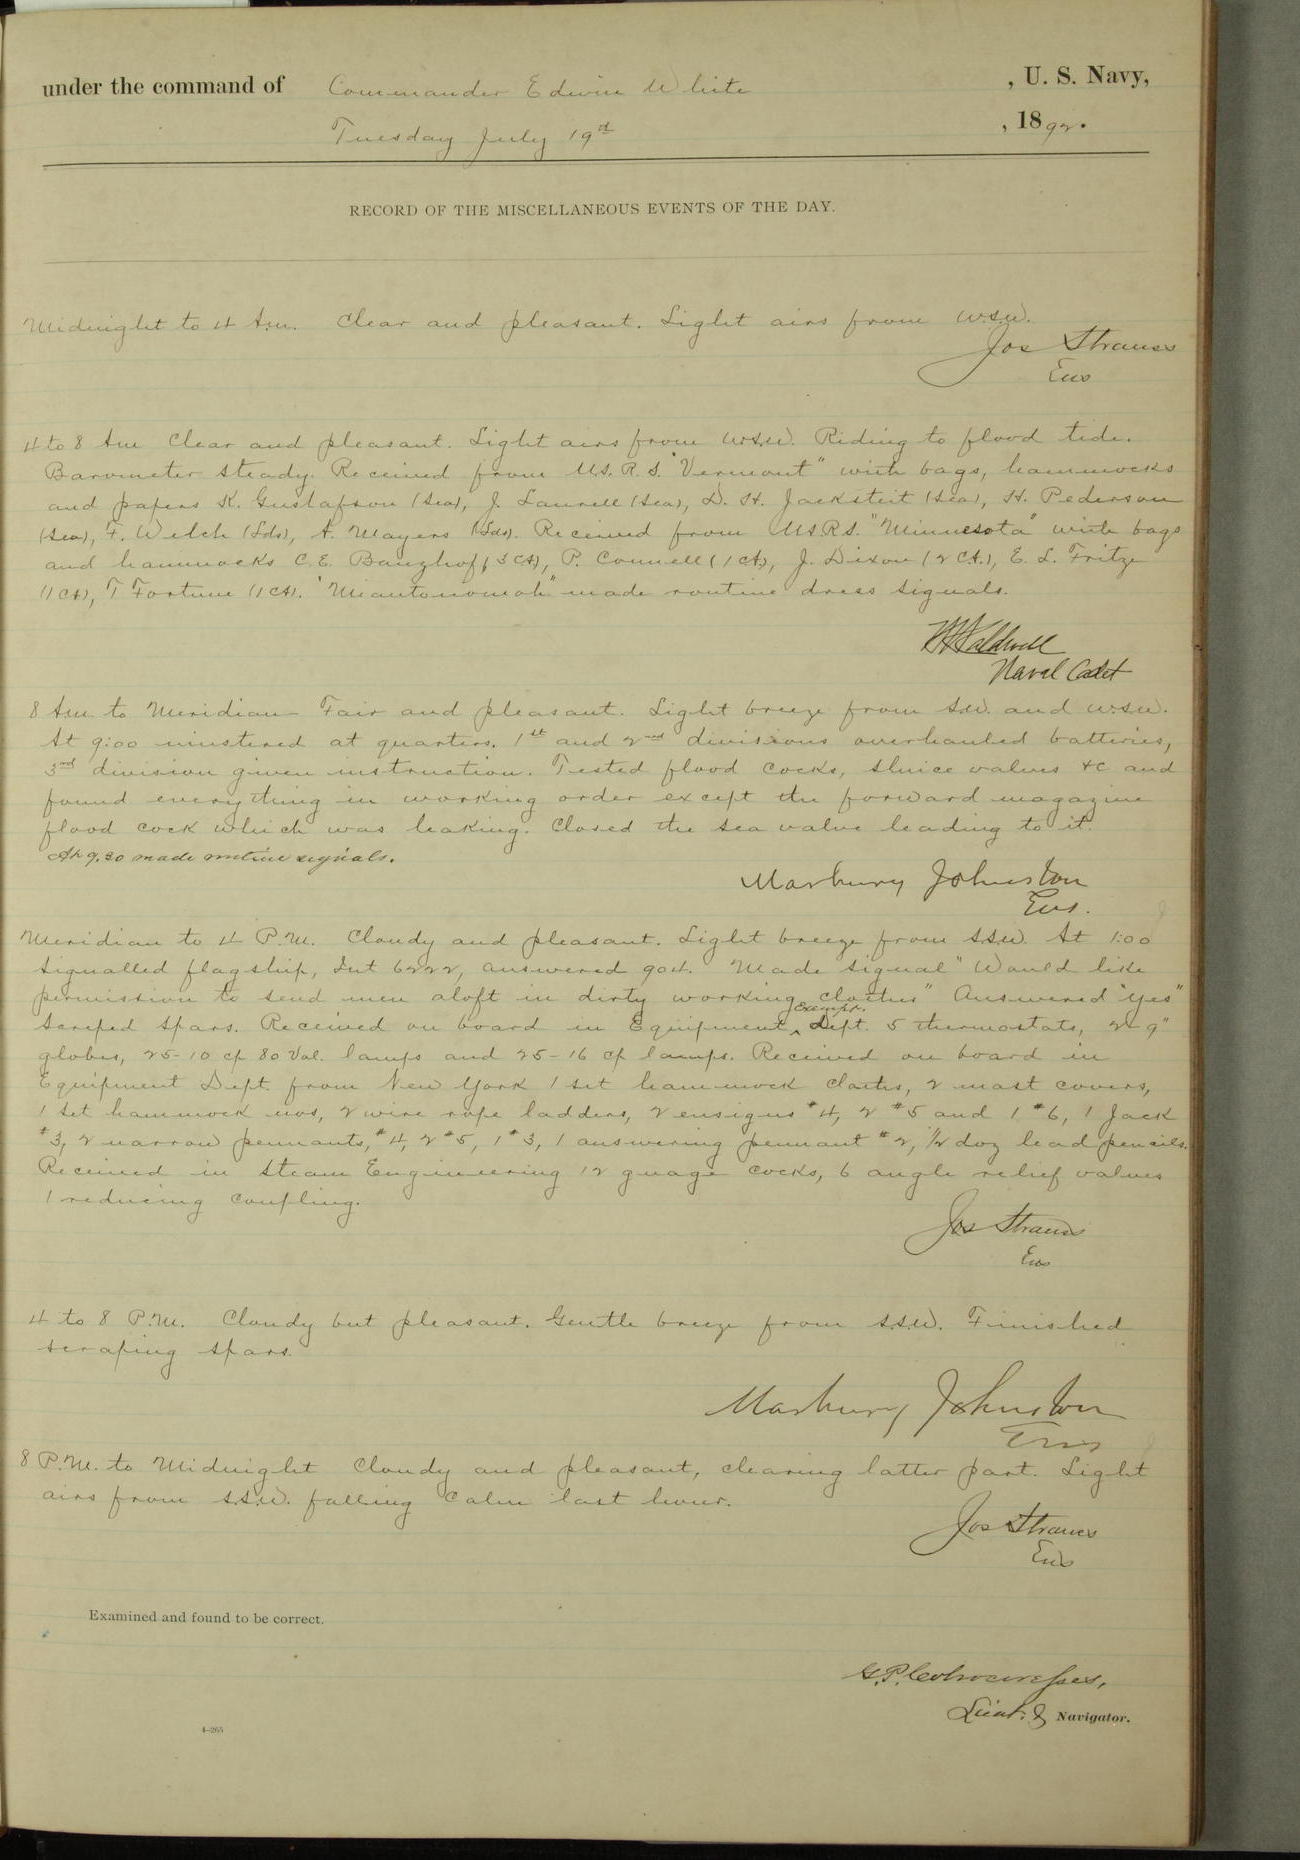 under the command of Commander Edwin White , U. S. Navy,
Tuesday July 19th , 1892.
RECORD OF THE MISCELLANEOUS EVENTS OF THE DAY.
Midnight to 4 A.m. Clear and pleasant. Light airs from W.S.W.
Jos Strauss
Ens
4 to 8 Am Clear and pleasant. Light airs from W.S.W. Riding to flood tide.
Barometer steady. Received from U.S.R.S. "Vermont" with bags, hammocks
and papers K. Gustafson (Sea), J. Laurell (Sea), D. H. Jacksteit (Sea), H. Pederson
(Sea), F. Welch (Lds), A. Mayers (Lds). Received from U.S.R.S. "Minnesota" with bags
and hammocks C. E. Banzhof (3 CA), P. Connell (1 CA), J. Dixon (2 CA.), E. L. Fritze
(1 CA), T Fortune (1 CA). "Miantonomoh" made routine dress signals.
Caldwell
Naval Cadet
8 Am. to Meridian Fair and pleasant. Light breeze from S.W. and W.S.W.
At 9:00 mustered at quarters. 1st and 2nd divisions overhauled batteries,
3rd division given instruction. Tested flood cocks, sluice valves &c and
found everything in working order except the forward magazine
flood cock which was leaking. Closed the sea valve leading to it.
At 9.30 made routine signals.
Marbury Johnston
Ens.
Meridian to 4 P.M. Cloudy and pleasant. Light breeze from S.S.W. At 1:00
signalled flagship, Int 6222, answered 904. Made signal "Would like
permission to send men aloft in dirty working clothes" Answered "Yes"
Screped spars. Received on board in Equipment ^ Dept. 5 thermostats, 2-9"
globes, 25-10 cp 80 Vol. lamps and 25-16 cp lamps. Received on board in
Equipment Dept. from New York 1 set hammock cloths, 2 mast covers,
1 set hammock nos, 2 wire rope ladders, 2 ensigns #4, 2 #5 and 1 #6, 1 Jack
#3, 2 narrow pennants, #4, 2 #5, 1 #3, 1 answering pennant #2, 1/2 doz lead pencils.
Received in Steam Engineering 12 guage cocks, 6 angle relief valves
1 reducing coupling.
Jos Strauss
Ens
4 to 8 P.M. Cloudy but pleasant. Gentle breeze from S.S.W. Finished
scraping spars.
Marbury Johnston
Ens
8 P.M. to Midnight Cloudy and pleasant, clearing latter part. Light
airs from S.S.W. falling calm last hour.
Jos Strauss
Ens
Examined and found to be correct.
G. P. Colvocoresses,
Lieut. & Navigator.
4-265